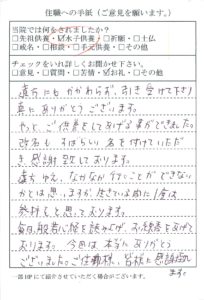 住職への手紙（ご意見を願います。）
当院では何をされましたか？
□先祖供養・☑水子供養・□祈願・□十仏
□戒名・□相談・□手元供養・□その他
チェックをいれ詳しくお聞かせ下さい。
□意見・□質問・□苦情・☑お礼・□その他
遠方にもかかわらず、引き受けて下さり
真にありがとうございます。
やっと、ご供養をしてあげる事ができました。
戒名もすばらしい名を付けていただ
き感謝致しております。
遠方ゆえ、なかなか行くことができない
かとは思いますが、生きている間に1度は
参拝をと思っております。
毎日、般若心経を読みあげ、お経をあげて
おります。今回は本当にありがとう
ございました。ご住職様、皆様に感謝致し
ます。
一部HPにて紹介させていただく場合がございます。